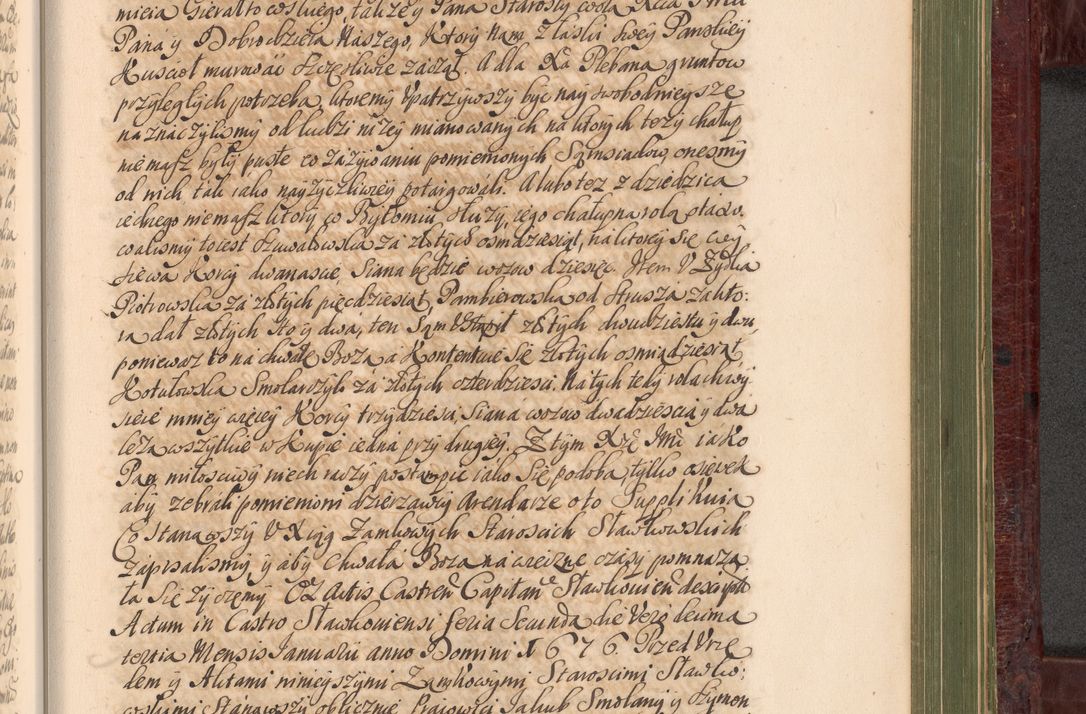 micia Gierałtowskiego, także y Pana Starosty
Pana y Dobrodzieia Naszego, Ktory Nam z łaski swey Panskiey
Kuscioł murować szczęsliwie zaczął. A dla Xa Plebana gruntow
przyległych potrzeba, ktoremy upatrzywszy być nay swobodnieysze
naznaczylismy od ludzi niżey mianowanych na ktorych teży chałup
nie masz były puste co zażywaniu pomienionych Szmsiadow, onesmy
od nich tak iako nayżyczliwiey potargowali. A lubo też z dziedzica
iednego niemasz ktory w Bytomiu służy, iego chałupna rola otaxo:
walismy to iest Szuwałowska za złotych osmdziesiąt, na ktorey się wey
siewa Korcy dwanascie, Siana będzie wozow dziesięc. Item U Zydka
Piotrowska za złotych pięcdziesiąt, Pambierowska od Strusza za kto:
ra dał złotych sto y dwa, ten Sąm Ustąpił złotych dwudziestu y dwu,
ponieważ to na chwałę Boza a Kontentuie Się złotych osmiądziesiąt
Kotulowska Smolarczyk za złotych czterdziesci, Na tych tedy rolach wy
sieie mniey więcey Korcy trzydziesci, Siana wozow dwadziescia y dwa
leża wszytkie w Kupie iedna przy drugiey. Z tym Xże Imc iako
Pan miłosciwy niech raczy postąpic iako Się podoba, tylko
aby zebrali pomienioni dzierzawcy Arendarze o to Supplikuia
Co Stanąwszy U Xiąg Zamkowych Staroscich Sławkowskich
zapisalismy y aby Chwała Boza na wieczne czasy pomnaza
ła Się życzęmy Ex Actis Castren Capitan Sławkowien descript
Actum in Castro Sławkoviensi feria Secunda die Vero decima
tertia Mensis Ianuarii anno Domini 1676 Przed Vrzę
dem y Aktami ninieyszymi Zamkowymi Staroscimi Sławko:
wskimi Stanąwszy oblicznie Pracowici Jakub Smolany y Szymon